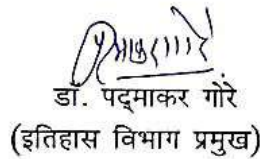 डॉ. पद्‌माकर गोरे
(इतिहास विभाग प्रमुख)